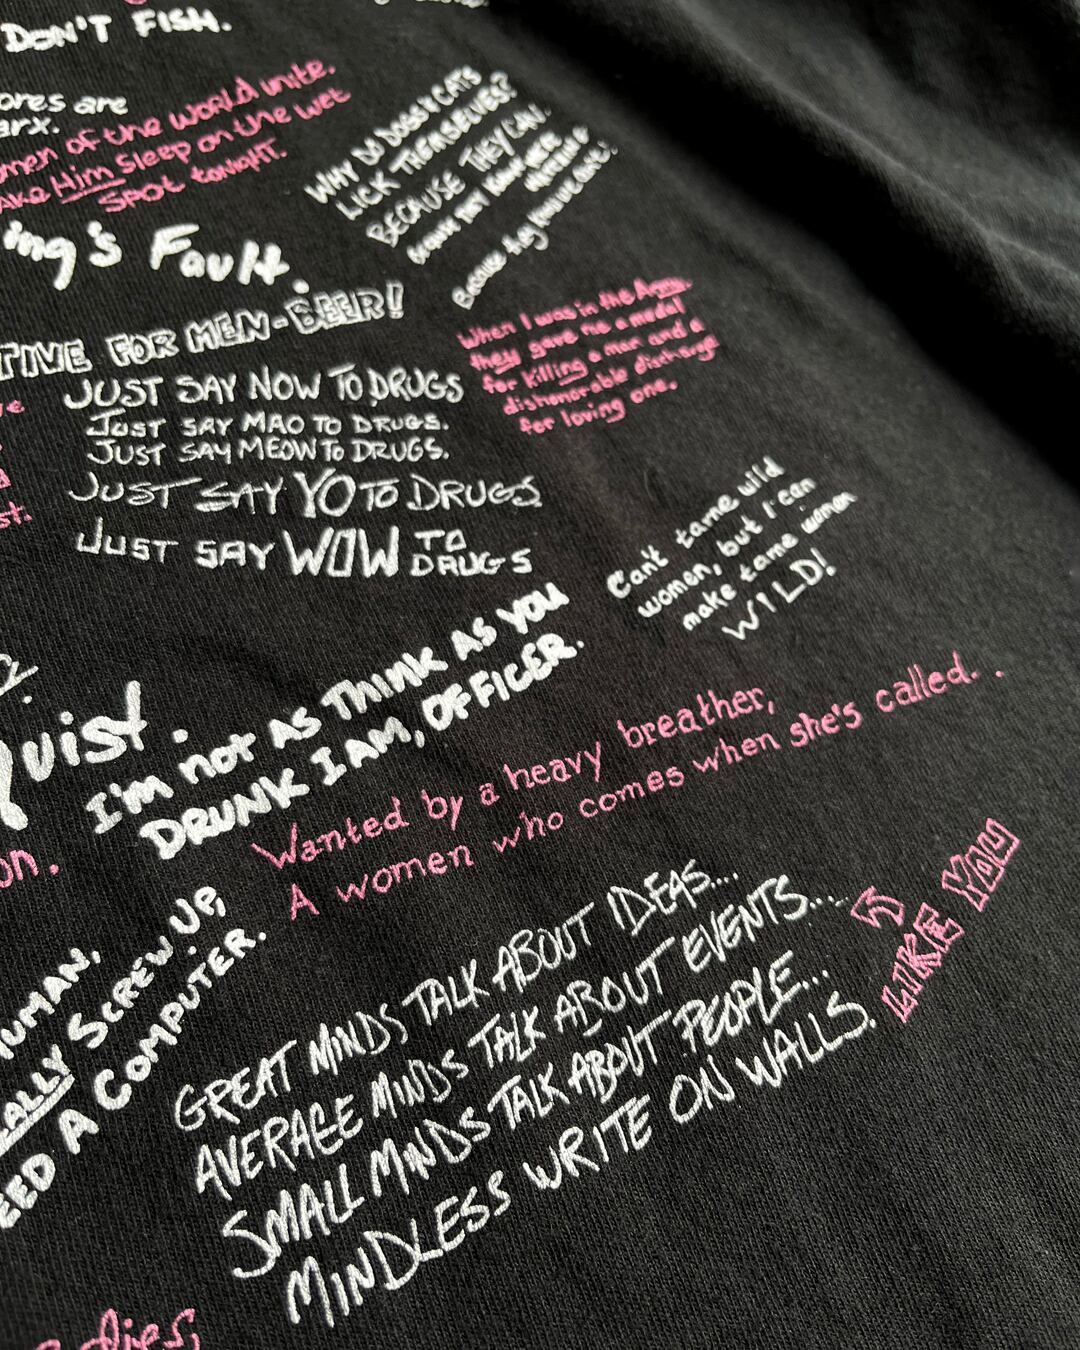 DON'T FISH.
ores are
arx.
men of the world unite.
ake Him sleep on the wet
SPOT tonigHT.
ing's Fault.
WHY DO DOGS & CATS
LICK THEMSELVES?
BECAUSE THEY CAN.
Because they
TIVE FOR MEN-BEER!
When I was in the Army,
they gave me a medal
for killing a man and a
dishonorable discharge
for loving one.
JUST SAY NOW TO DRUGS
JUST SAY MAO TO DRUGS.
JUST SAY MEOW TO DRUGS.
JUST SAY YO TO DRUGS
JUST SAY WOW TO
DRUGS
st.
Can't tame wild
women, but I can
make tame women
WILD!
uist.
I'm not AS THINK AS YOU
DRUNK I AM, OFFICER.
on.
Wanted by a heavy breather,
A women who comes when she's called. . .
HUMAN,
ALLY SCREW UP,
EED A COMPUTER.
GREAT MINDS TALK ABOUT IDEAS...
AVERAGE MINDS TALK ABOUT EVENTS...
SMALL MINDS TALK ABOUT PEOPLE...
MINDLESS WRITE ON WALLS.
LIKE YOU
dies,